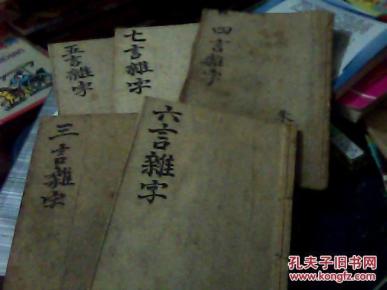 五言雜字
七言雜字
四言雜字
三言雜字
六言雜字
孔夫子旧书网